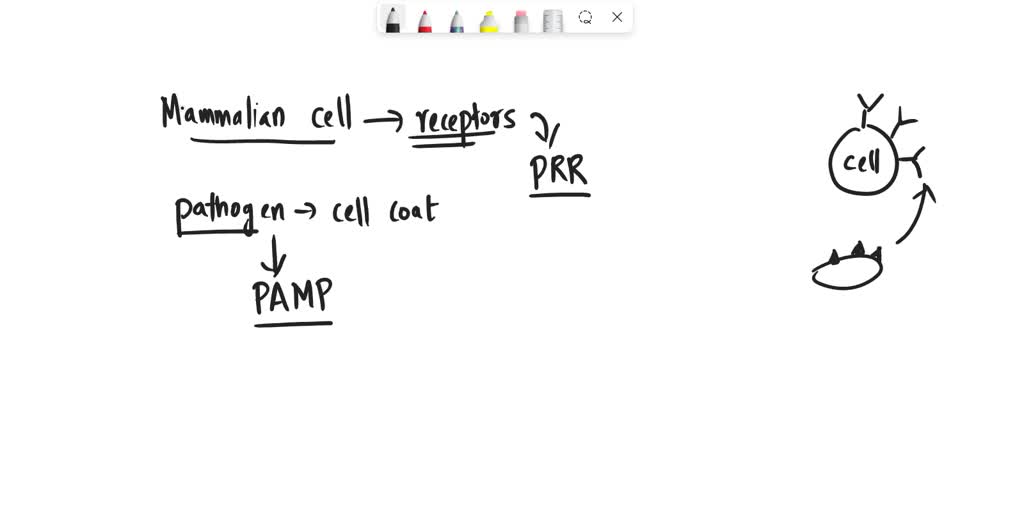 Mammalian cell → receptors
PRR
pathogen → cell coat
PAMP
cell